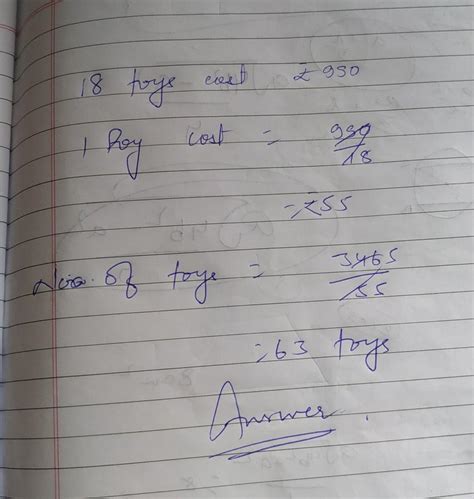 18 toys cost ₹990
1 Roy cost = 990/18
=₹55
No. of toys = 3465/55
=63 toys
Answer.